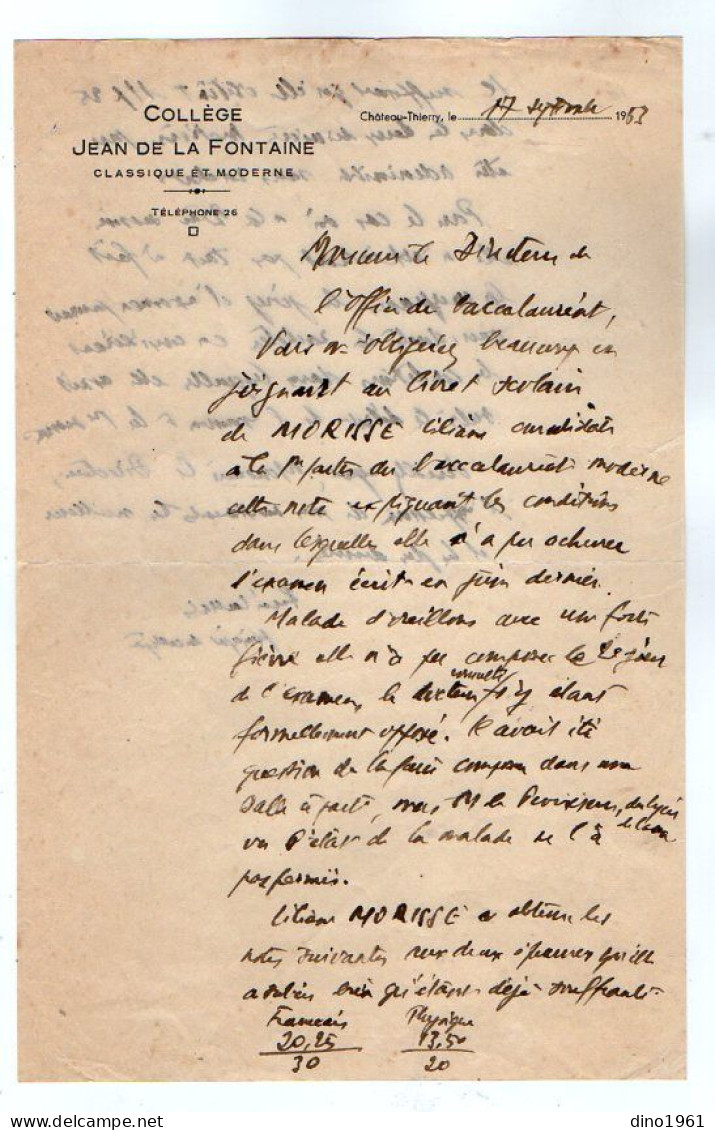 COLLÈGE
JEAN DE LA FONTAINE
CLASSIQUE ET MODERNE
TÉLÉPHONE 26
Château-Thierry, le 17 septembre 1953
Monsieur le Directeur de
l'Office du baccalauréat,
Vous m'obligeriez beaucoup en
joignant au livret scolaire
de MORISSE Liliane candidate
à la 1re partie du baccalauréat moderne
cette note expliquant les conditions
dans lesquelles elle n'a pu achever
l'examen écrit en juin dernier.
Malade d'oreillons avec une forte
fièvre elle n'a pu composer le 2e jour
de l'examen, le docteur consulté s'y étant
formellement opposé. Il avait été
question de la faire composer dans une
salle à part, mais M. le Proviseur du lycée
de Laon
vu l'état de la malade ne l'a
pas permis.
Liliane MORISSE a obtenu les
notes suivantes aux deux épreuves qu'elle
a subies bien qu'étant déjà souffrante
Français Physique
20,25 13,50
30 20
dino1961